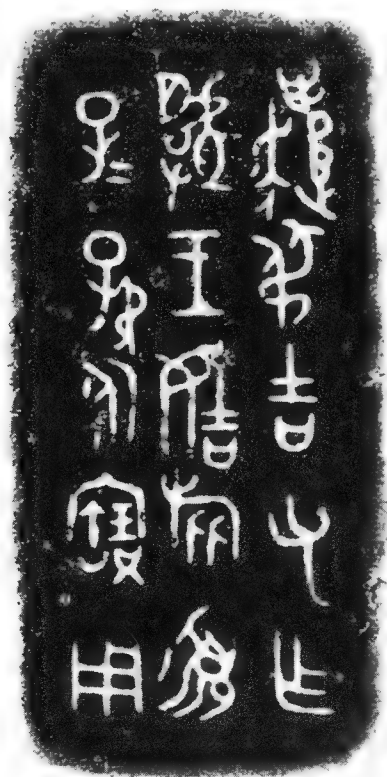 遣叔吉父乍
虢王姞旅須
子=孫永寶用